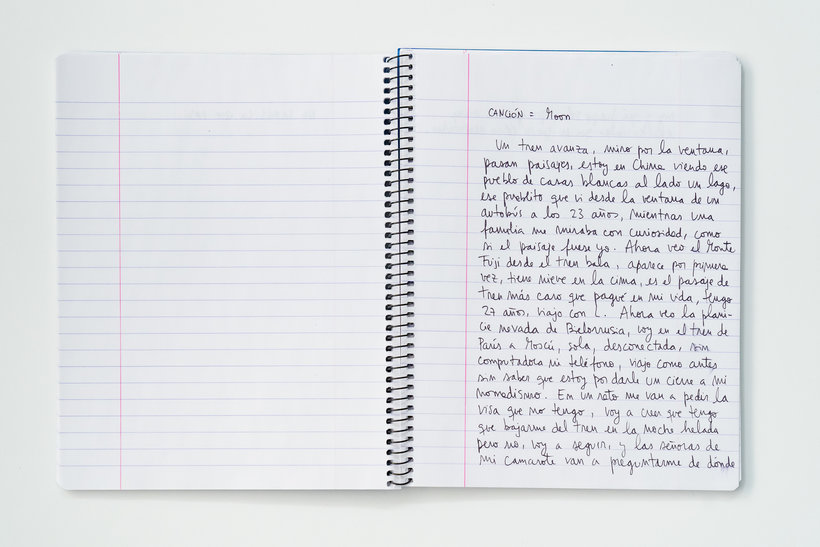 CANCIÓN = Moon
Un tren avanza, miro por la ventana,
pasan paisajes, estoy en China viendo ese
pueblo de casas blancas al lado un lago,
ese pueblito que vi desde la ventana de un
autobús a los 23 años, mientras una
familia me miraba con curiosidad, como
si el paisaje fuese yo. Ahora veo el Monte
Fuji desde el tren bala, aparece por primera
vez, tiene nieve en la cima, es el pasaje de
tren más caro que pagué en mi vida, tengo
27 años, viajo con L. Ahora veo la plani-
cie nevada de Bielorrusia, voy en el tren de
París a Moscú, sola, desconectada, sin
computadora ni teléfono, viajo como antes
sin saber que estoy por darle un cierre a mi
nomadismo. En un rato me van a pedir la
visa que no tengo, voy a creer que tengo
que bajarme del tren en la noche helada
pero no, voy a seguir, y las señoras de
mi camarote van a preguntarme de dónde